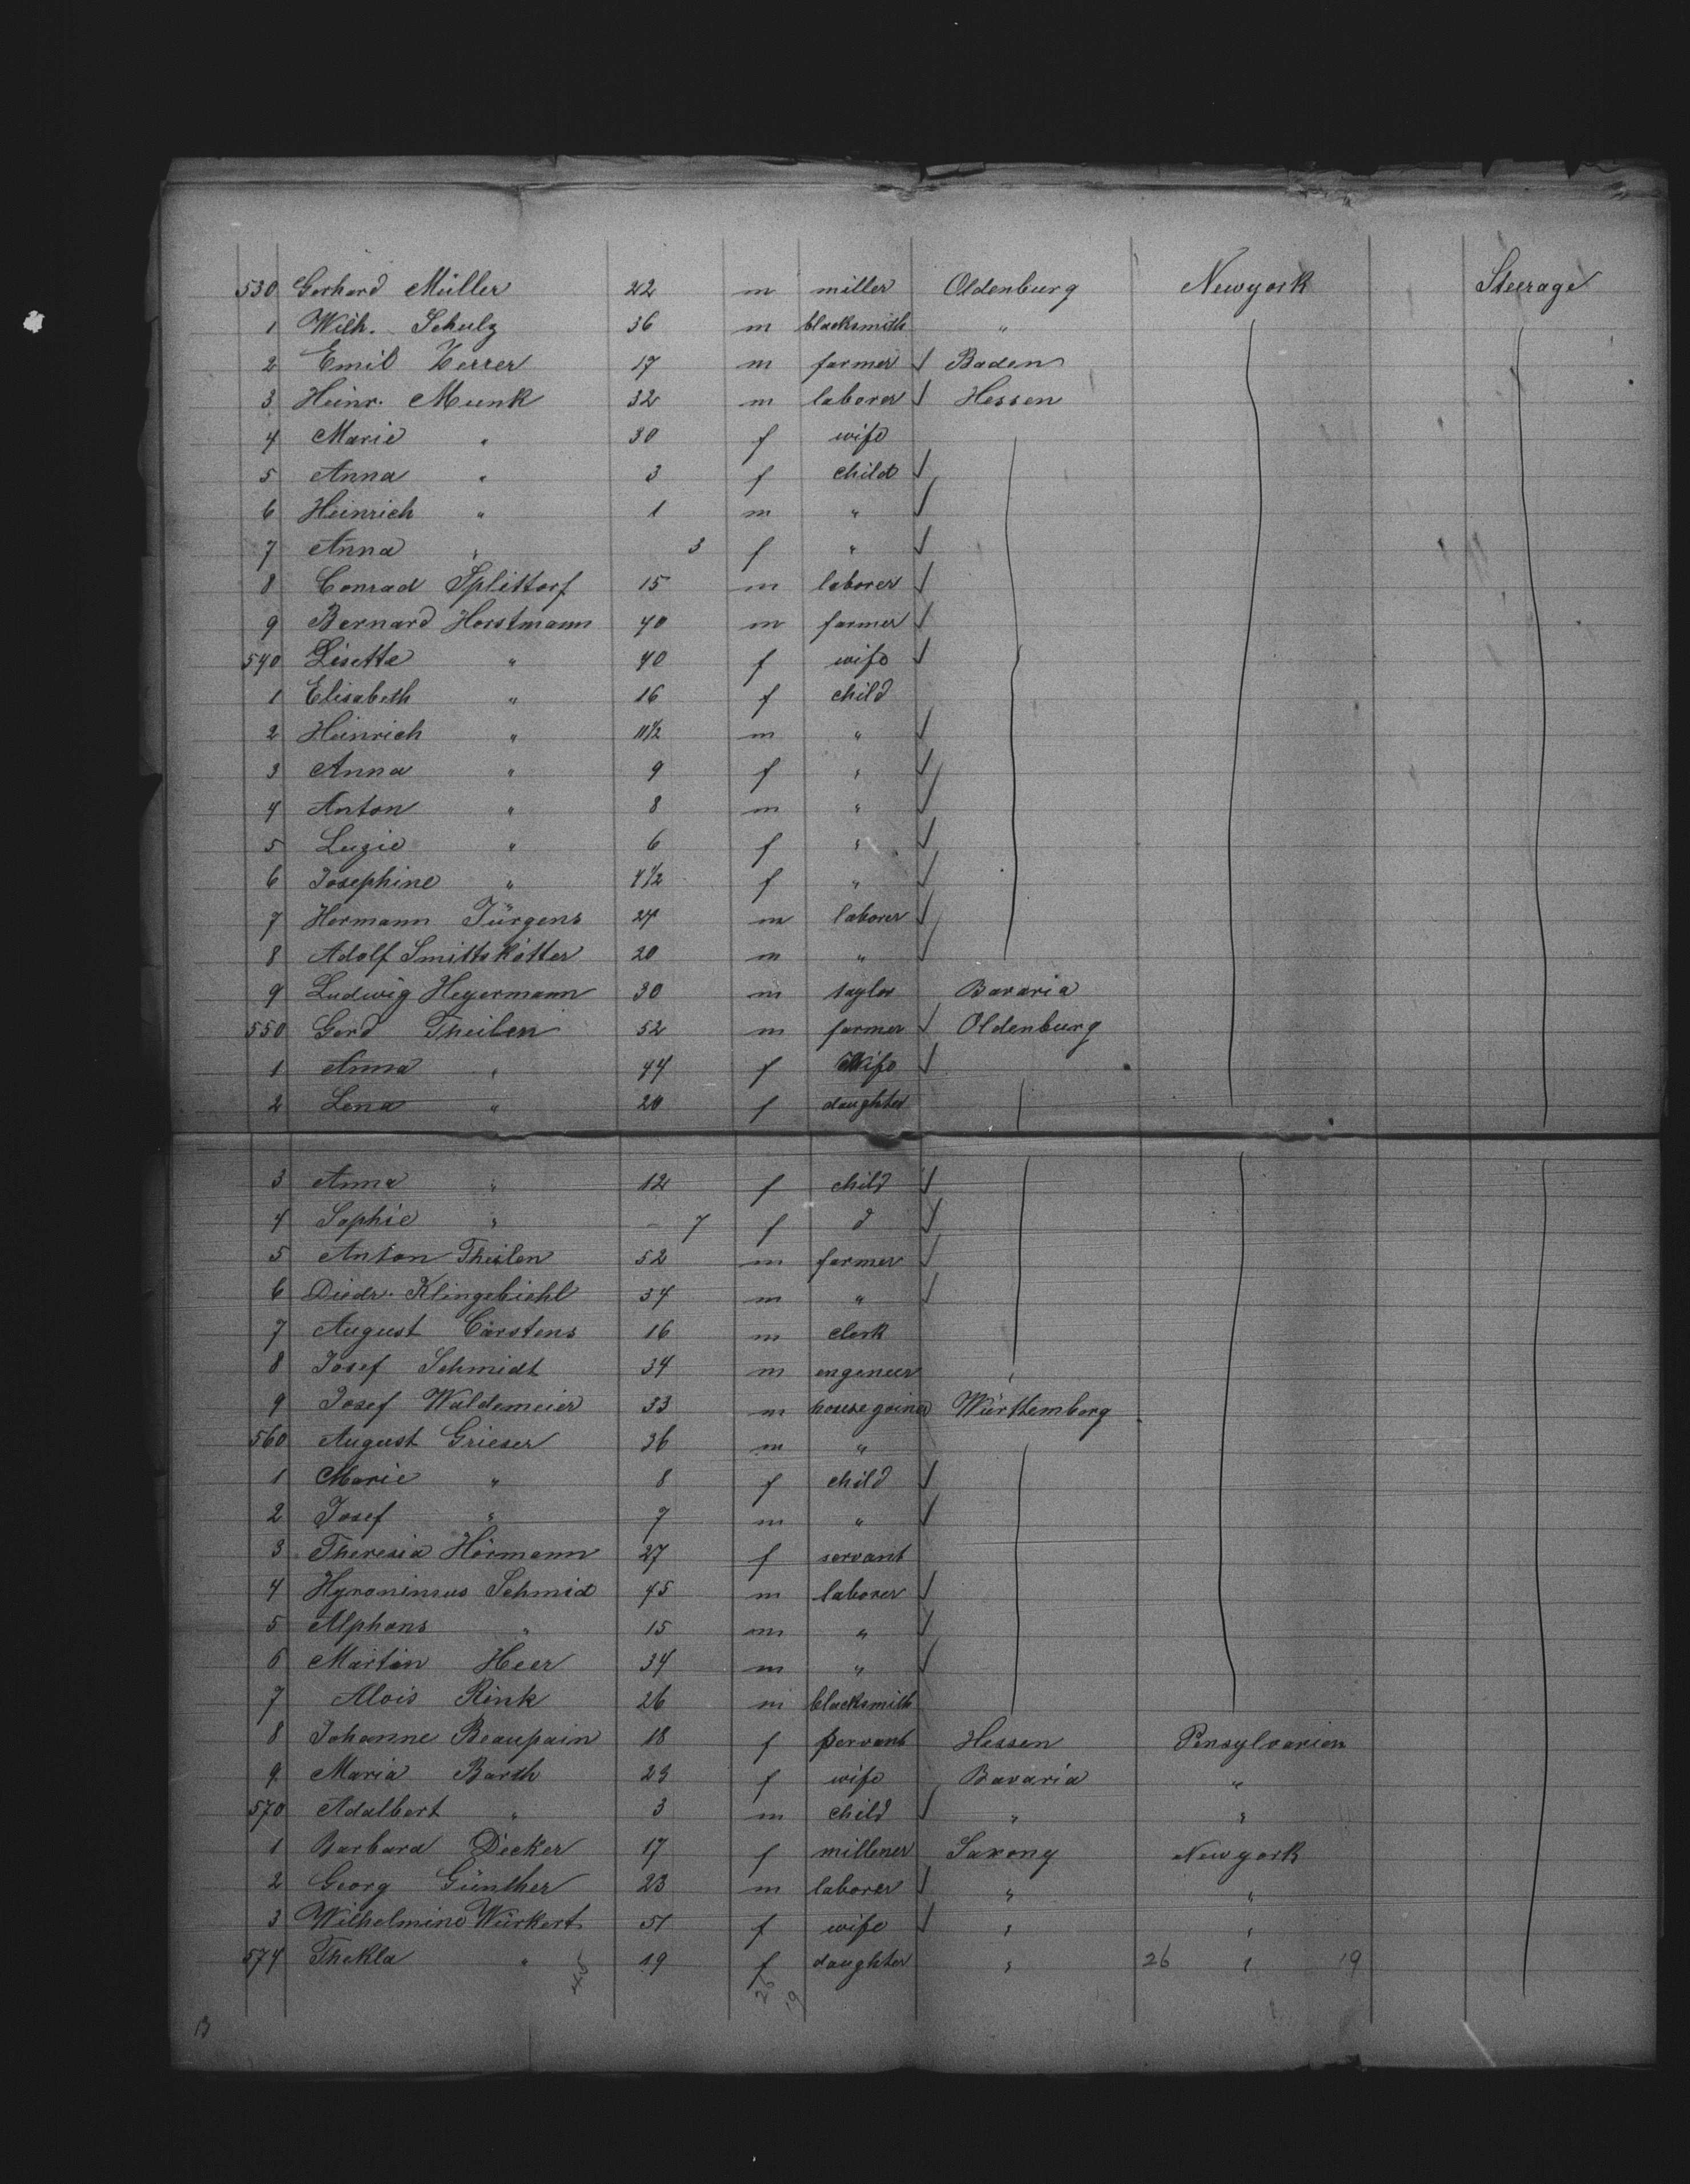 530 Gerhard Müller 22 m miller Oldenburg Newyork Steerage
1 Wilh. Schulz 36 m blacksmith "
2 Emil Zerrer 17 m farmer √ Baden
3 Heinr. Munk 32 m laborer √ Hessen
4 Marie " 30 f wife
5 Anna " 3 f child √
6 Heinrich " 1 m " √
7 Anna " 3 f " √
8 Conrad Splittorf 15 m laborer √
9 Bernard Horstmann 40 m farmer √
540 Lisette " 40 f wife √
1 Elisabeth " 16 f child
2 Heinrich " 11½ m " √
3 Anna " 9 f " √
4 Anton " 8 m " √
5 Luzie " 6 f " √
6 Josephine " 4½ f " √
7 Hermann Jürgens 24 m laborer √
8 Adolf Smittskötter 20 m " √
9 Ludwig Heyermann 30 m taylor Bavaria
550 Gerd Theilen 52 m farmer √ Oldenburg
1 Anna " 44 f wife √
2 Lena " 20 f daughter
3 Anna " 12 f child √
4 Sophie " - 7 f d √
5 Anton Theilen 52 m farmer √
6 Diedr. Klingebiehl 34 m " √
7 August Carstens 16 m clerk
8 Josef Schmidt 34 m engeneer
9 Josef Waldemeier 33 m Württemberg
560 August Grieser 36 m "
1 Marie " 8 f child √
2 Josef " 7 m " √
3 Theresia Hörmann 27 f servant
4 Hyronimus Schmid 45 m laborer √
5 Alphons " 15 m " √
6 Martin Heer 34 m " √
7 Alois Rink 26 m blacksmith
8 Johanne Beaupain 18 f servant Hessen Pensylvanien
9 Maria Barth 23 f wife Bavaria "
570 Adalbert " 3 m child √ " "
1 Barbara Decker 17 f millener Saxony Newyork
2 Georg Günther 23 m laborer √ " "
3 Wilhelmine Würkert 51 f wife √ " "
574 Thekla " 19 f daughter " 26 " 19
45 26 19
13